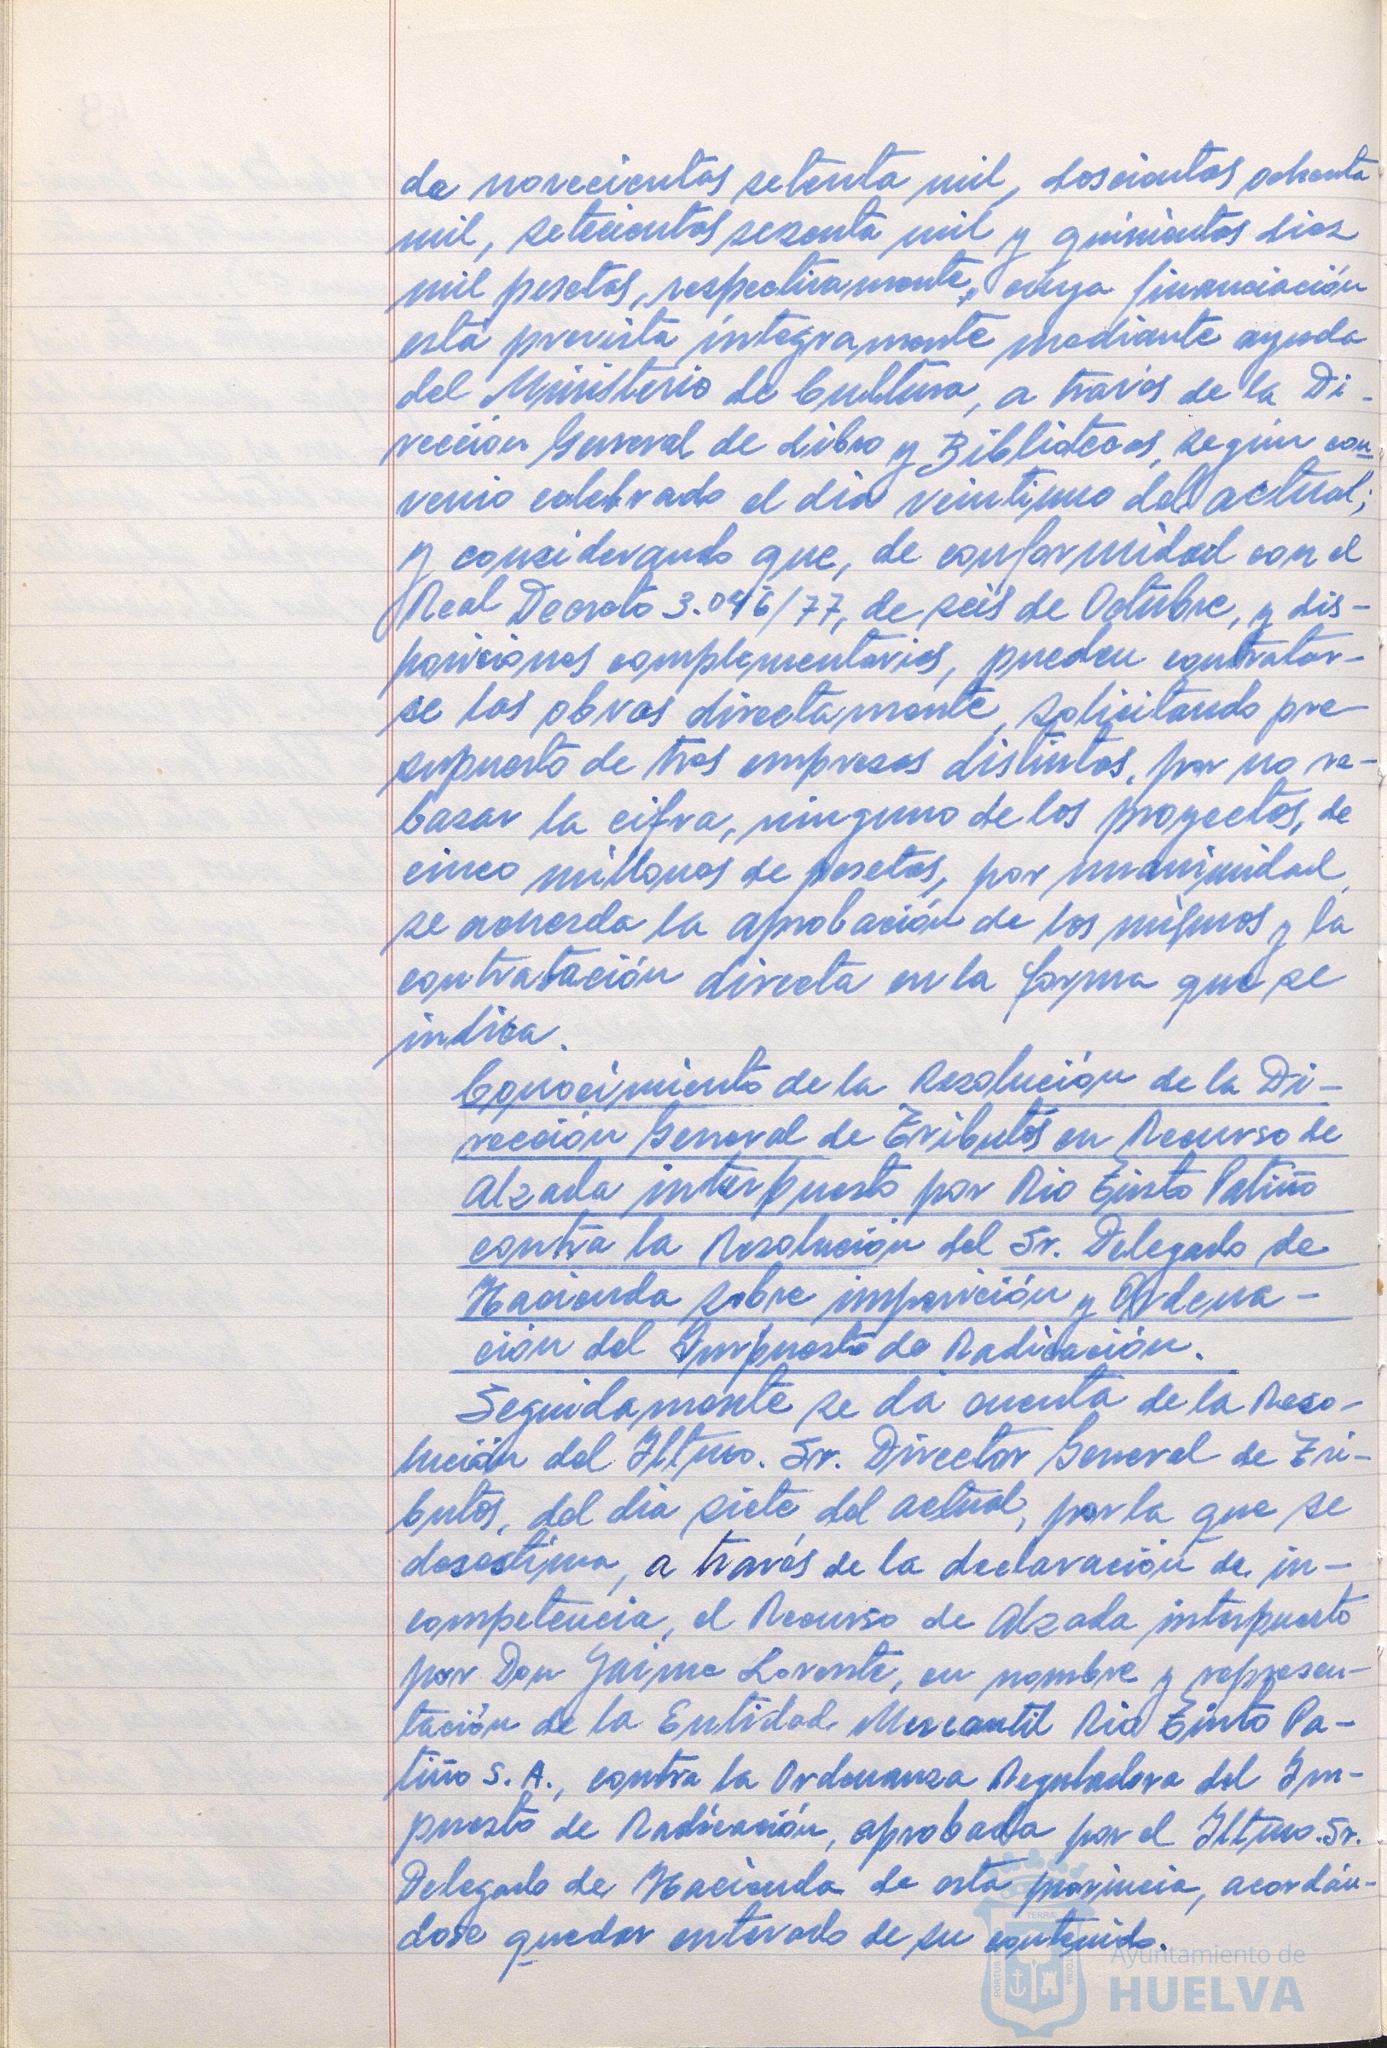 de novecientas setenta mil, doscientas ochenta
mil, setecientas sesenta mil y quinientas diez
mil pesetas, respectivamente, cuya financiación
está prevista íntegramente mediante ayuda
del Ministerio de Cultura, a través de la Di-
rección General de Libro y Bibliotecas, según con-
venio celebrado el día veintiuno del actual;
y considerando que, de conformidad con el
Real Decreto 3.046/77, de seis de Octubre, y dis-
posiciones complementarias, pueden contratar-
se las obras directamente, solicitando pre-
supuesto de tres empresas distintas, por no re-
basar la cifra, ninguno de los proyectos, de
cinco millones de pesetas, por unanimidad,
se acuerda la aprobación de los mismos y la
contratación directa en la forma que se
indica.
Conocimiento de la Resolución de la Di-
rección General de Tributos en Recurso de
Alzada interpuesto por Rio Tinto Patiño
contra la Resolución del Sr. Delegado de
Hacienda sobre imposición y Ordena-
ción del Impuesto de Radicación.
Seguidamente se da cuenta de la Reso-
lución del Iltmo. Sr. Director General de Tri-
butos, del día siete del actual, por la que se
desestima, a través de la declaración de in-
competencia, el Recurso de Alzada interpuesto
por Don Jaime Lorente, en nombre y represen-
tación de la Entidad Mercantil Rio Tinto Pa-
tiño S. A., contra la Ordenanza Reguladora del Im-
puesto de Radicación, aprobada por el Iltmo. Sr.
Delegado de Hacienda de esta provincia, acordán-
dose quedar enterado de su contenido.
Ayuntamiento de
HUELVA